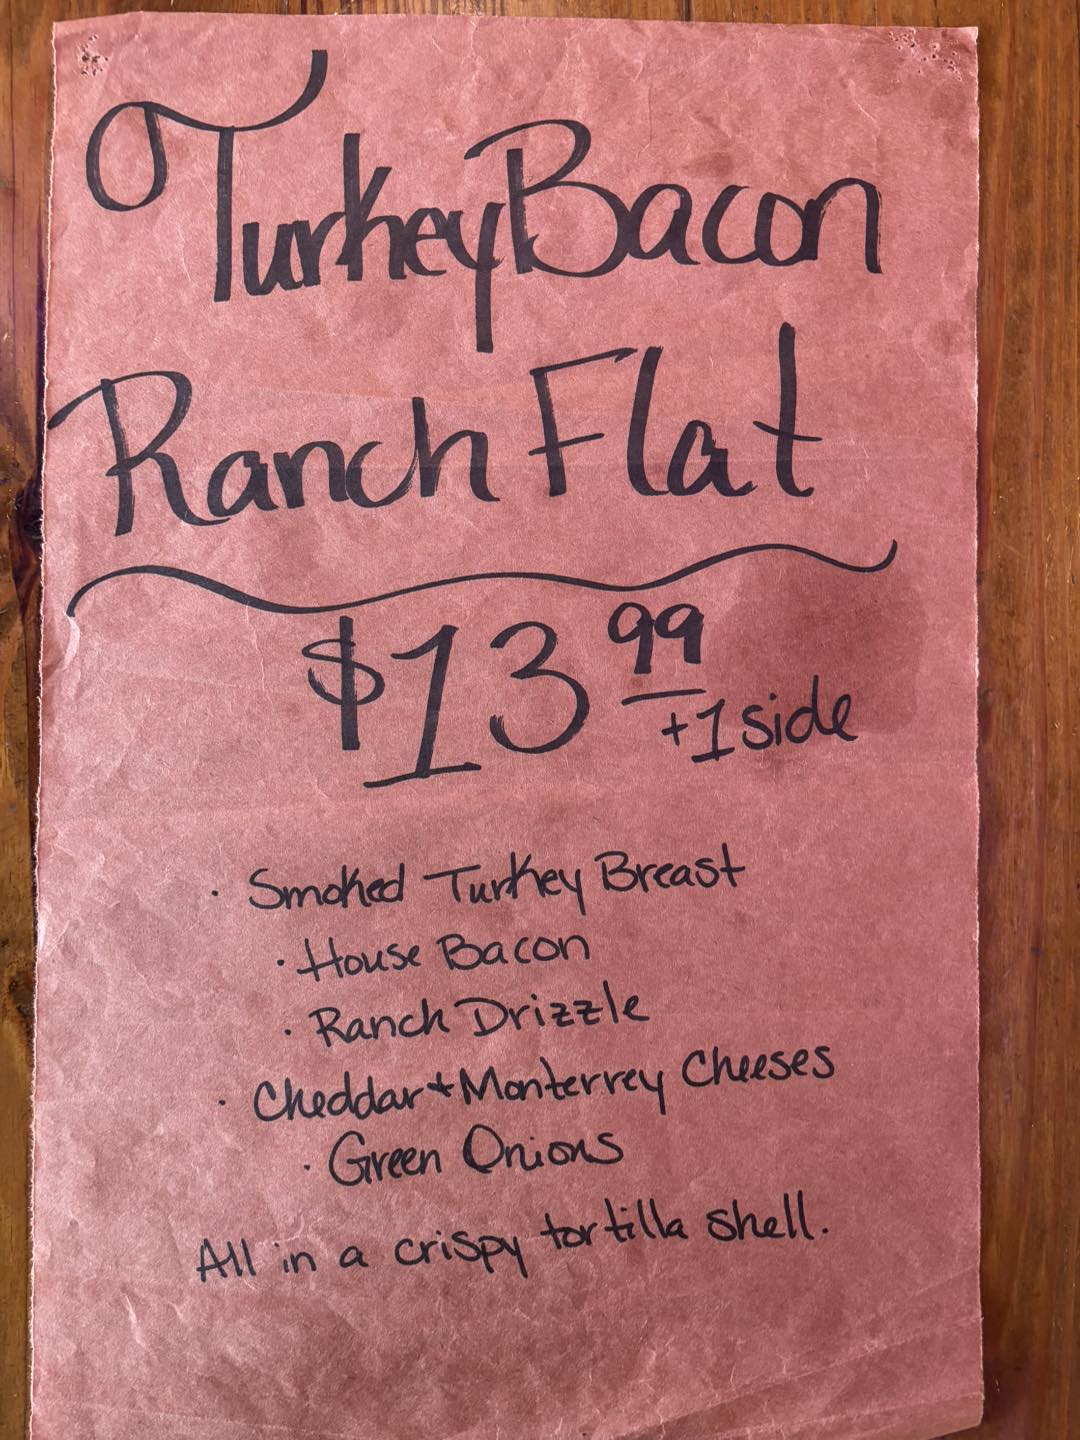 Turkey Bacon
Ranch Flat
$13.99
+1 side
· Smoked Turkey Breast
· House Bacon
· Ranch Drizzle
· Cheddar + Monterrey Cheeses
· Green Onions
All in a crispy tortilla shell.